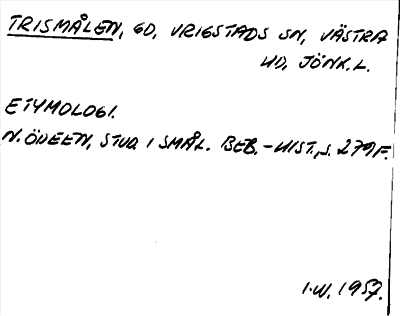 TRISMÅLEN, GD, VRIGSTADS SN, VÄSTRA
HD, JÖNK. L.
ETYMOLOGI.
N. ÖDEEN, STUD. I SMÅL. BEB.-HIST., S. 279 F.
I.W. 1957.